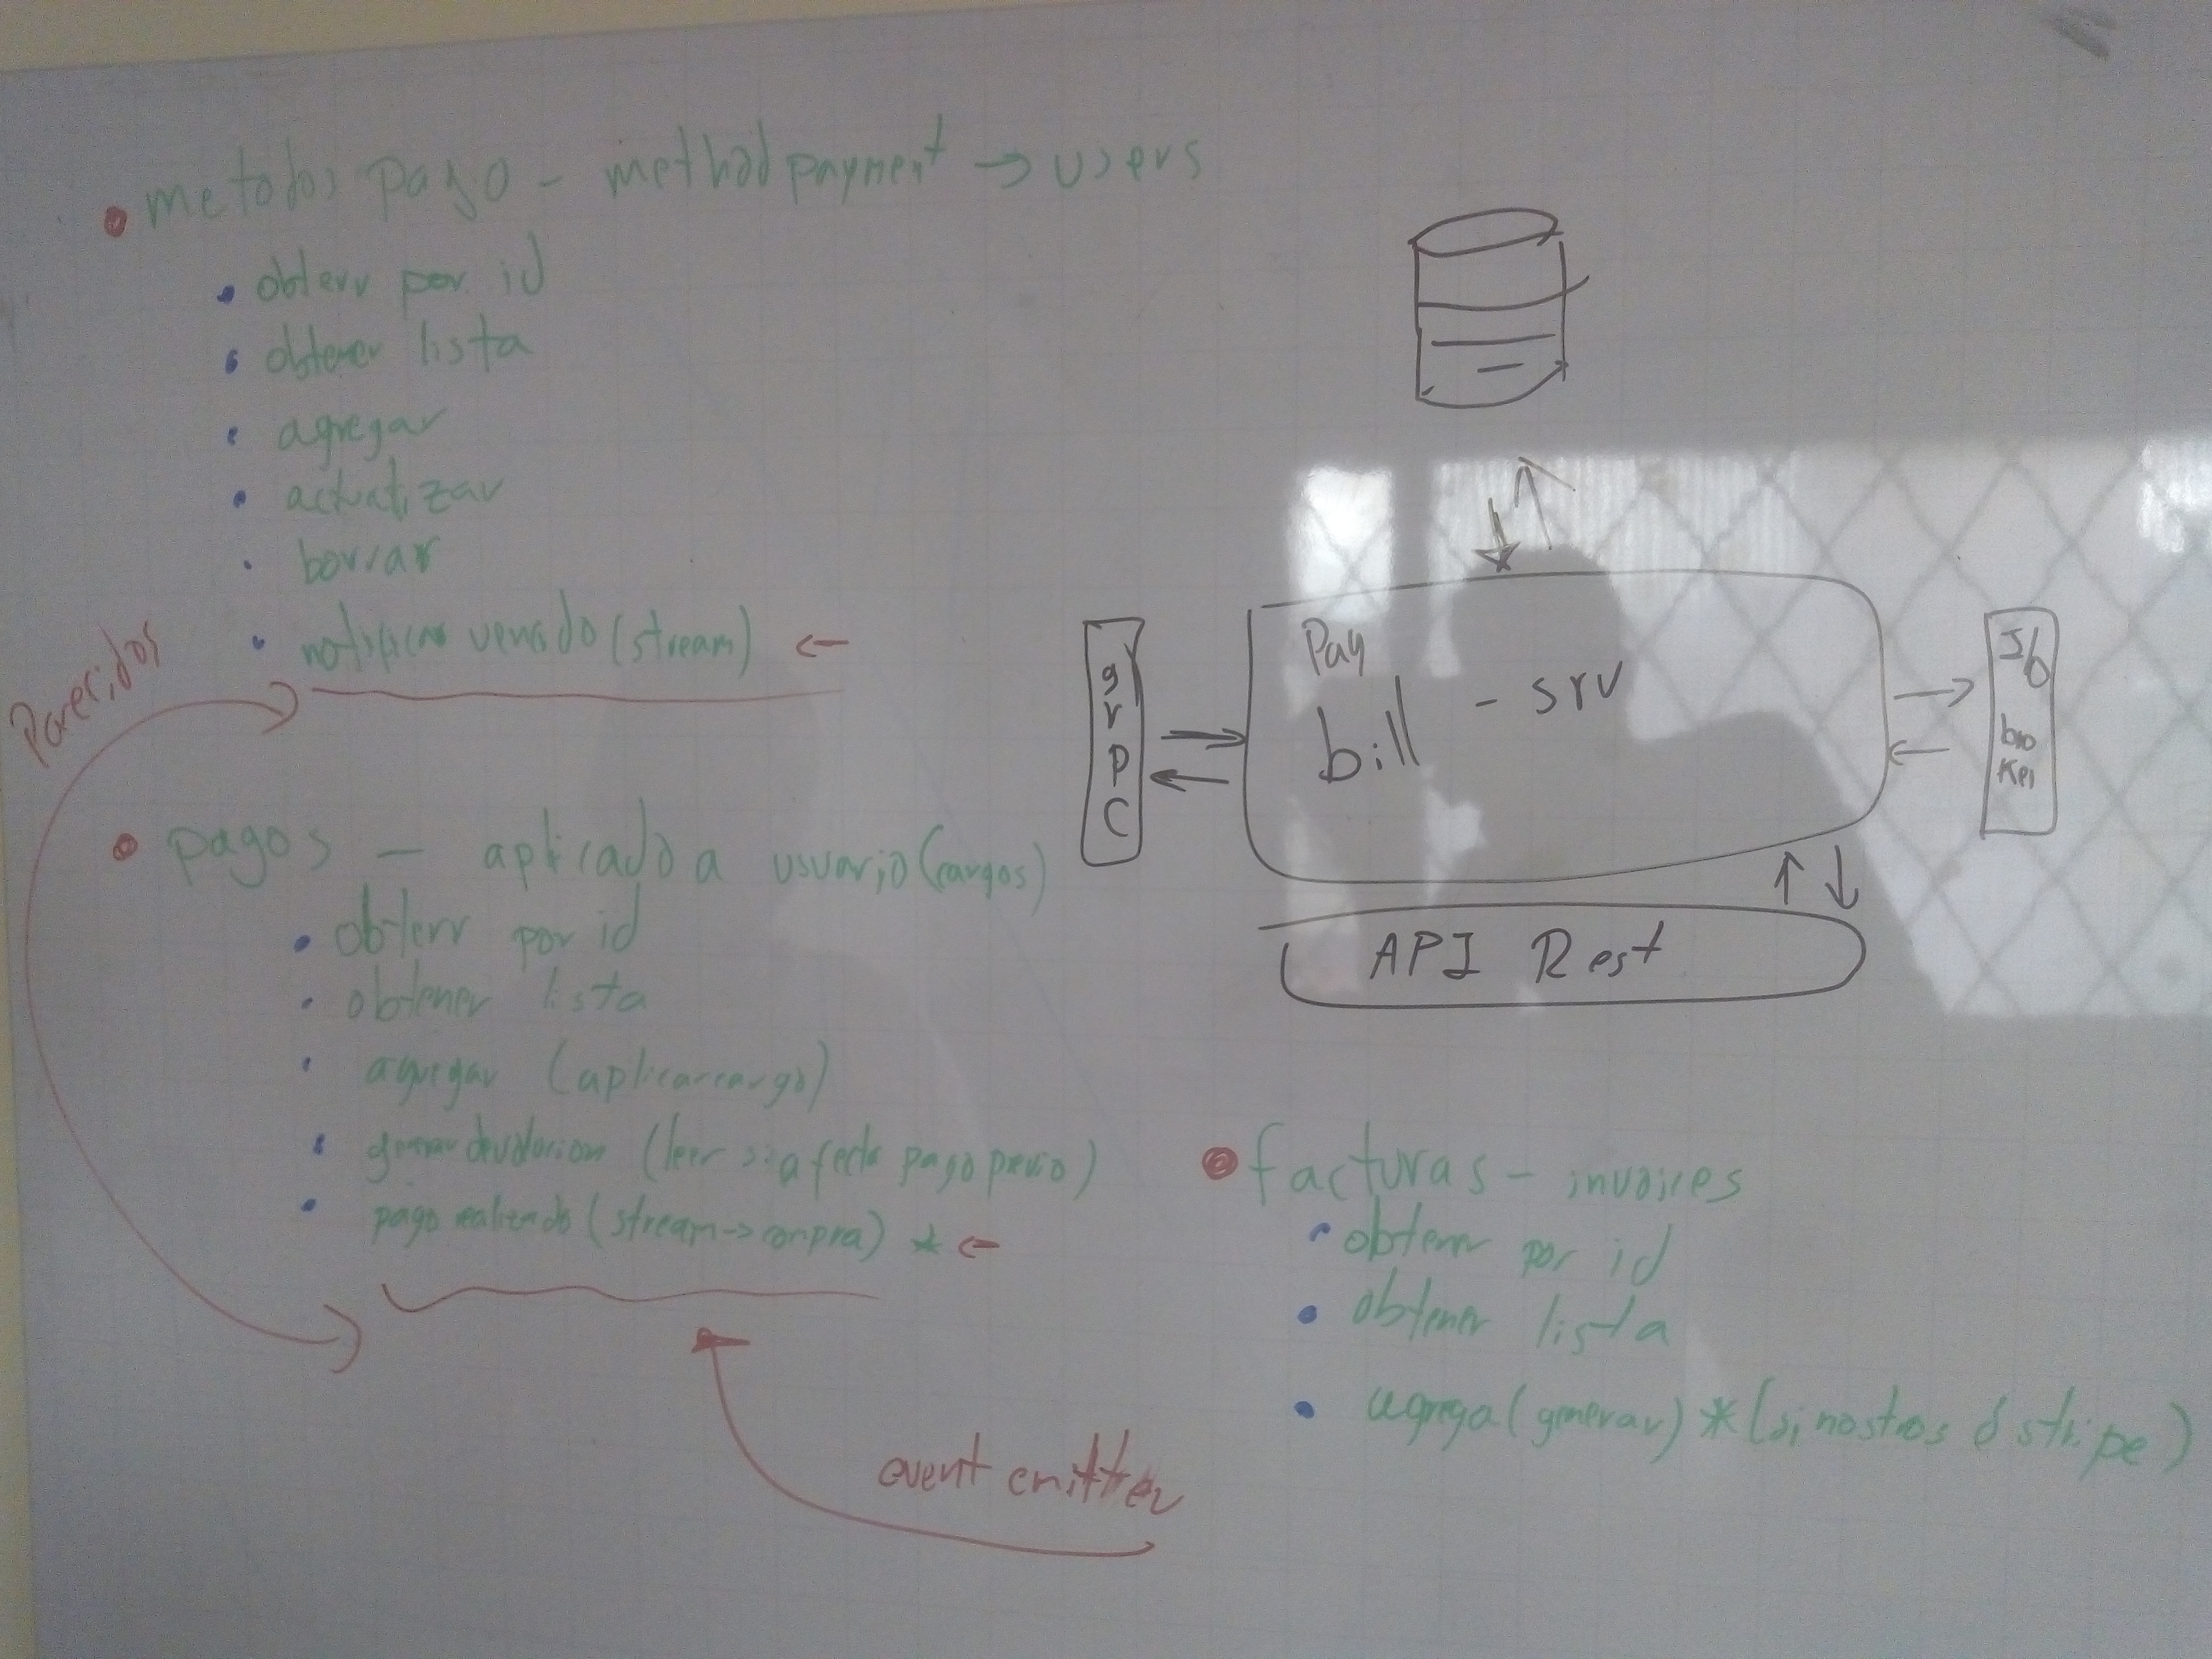 metodos pago - method payment → users
obtenr por id
obtener lista
agregar
actualizar
borrar
notificar vencido (stream) ←
Parecidos
pagos — aplicado a usuario (cargos)
obtenr por id
obtener lista
agregar (aplicar cargo)
(leer si afecta pago previo)
pago realizado (stream → compra) * ←
event emitter
gRPC
Pay
bill - srv
I/O
API Rest
facturas - invoices
obtener por id
obtener lista
agrega (generar) * (si nostros o stripe)